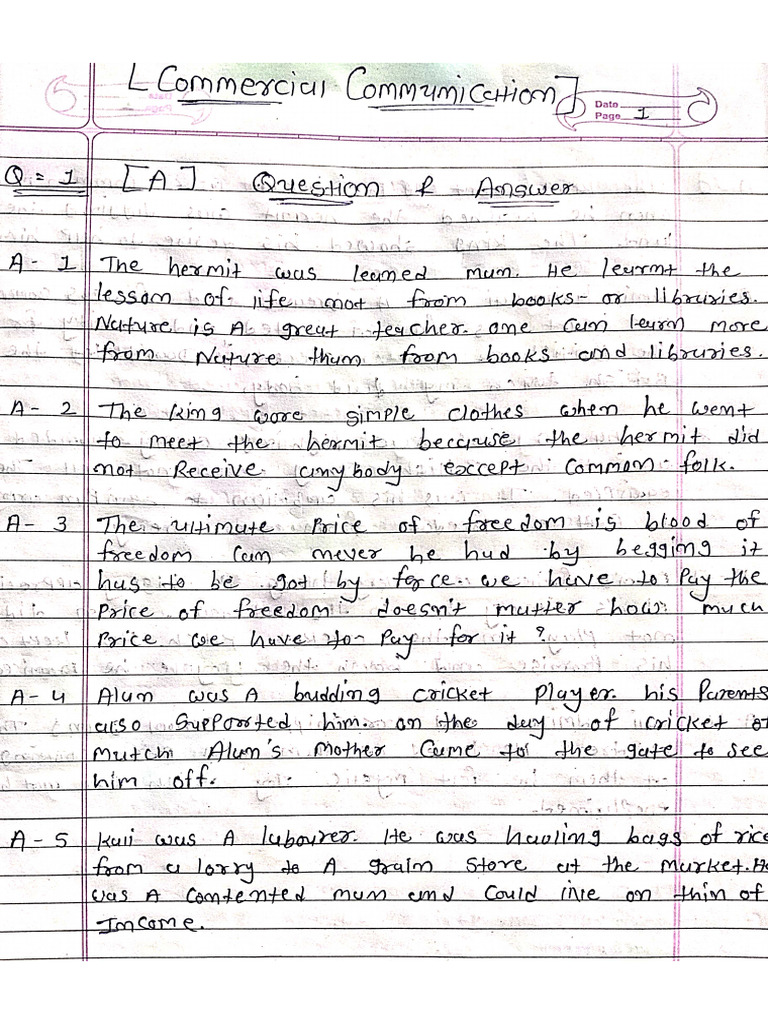 [Commercial Communication]
Date
Page 1
Q = 1 [A] Question & Answer
A - 1 The hermit was learned man. He learnt the
lesson of life not from books or libraries.
Nature is A great teacher. one can learn more
from Nature than from books and libraries.
A - 2 The king wore simple clothes when he went
to meet the hermit because the hermit did
not Receive anybody except common folk.
A - 3 The ultimate Price of freedom is blood of
freedom can never be had by begging it
has to be got by force. we have to Pay the
Price of freedom doesn't matter how much
Price we have to Pay for it ?
A - 4 Alan was A budding cricket Player. his Parents
also supported him. on the day of cricket of
match Alan's Mother Came to the gate to see
him off.
A - 5 was A labourer. He was hauling bags of rice
from a lorry to A grain store at the market. He
was A contented man and could live on thin of
Income.